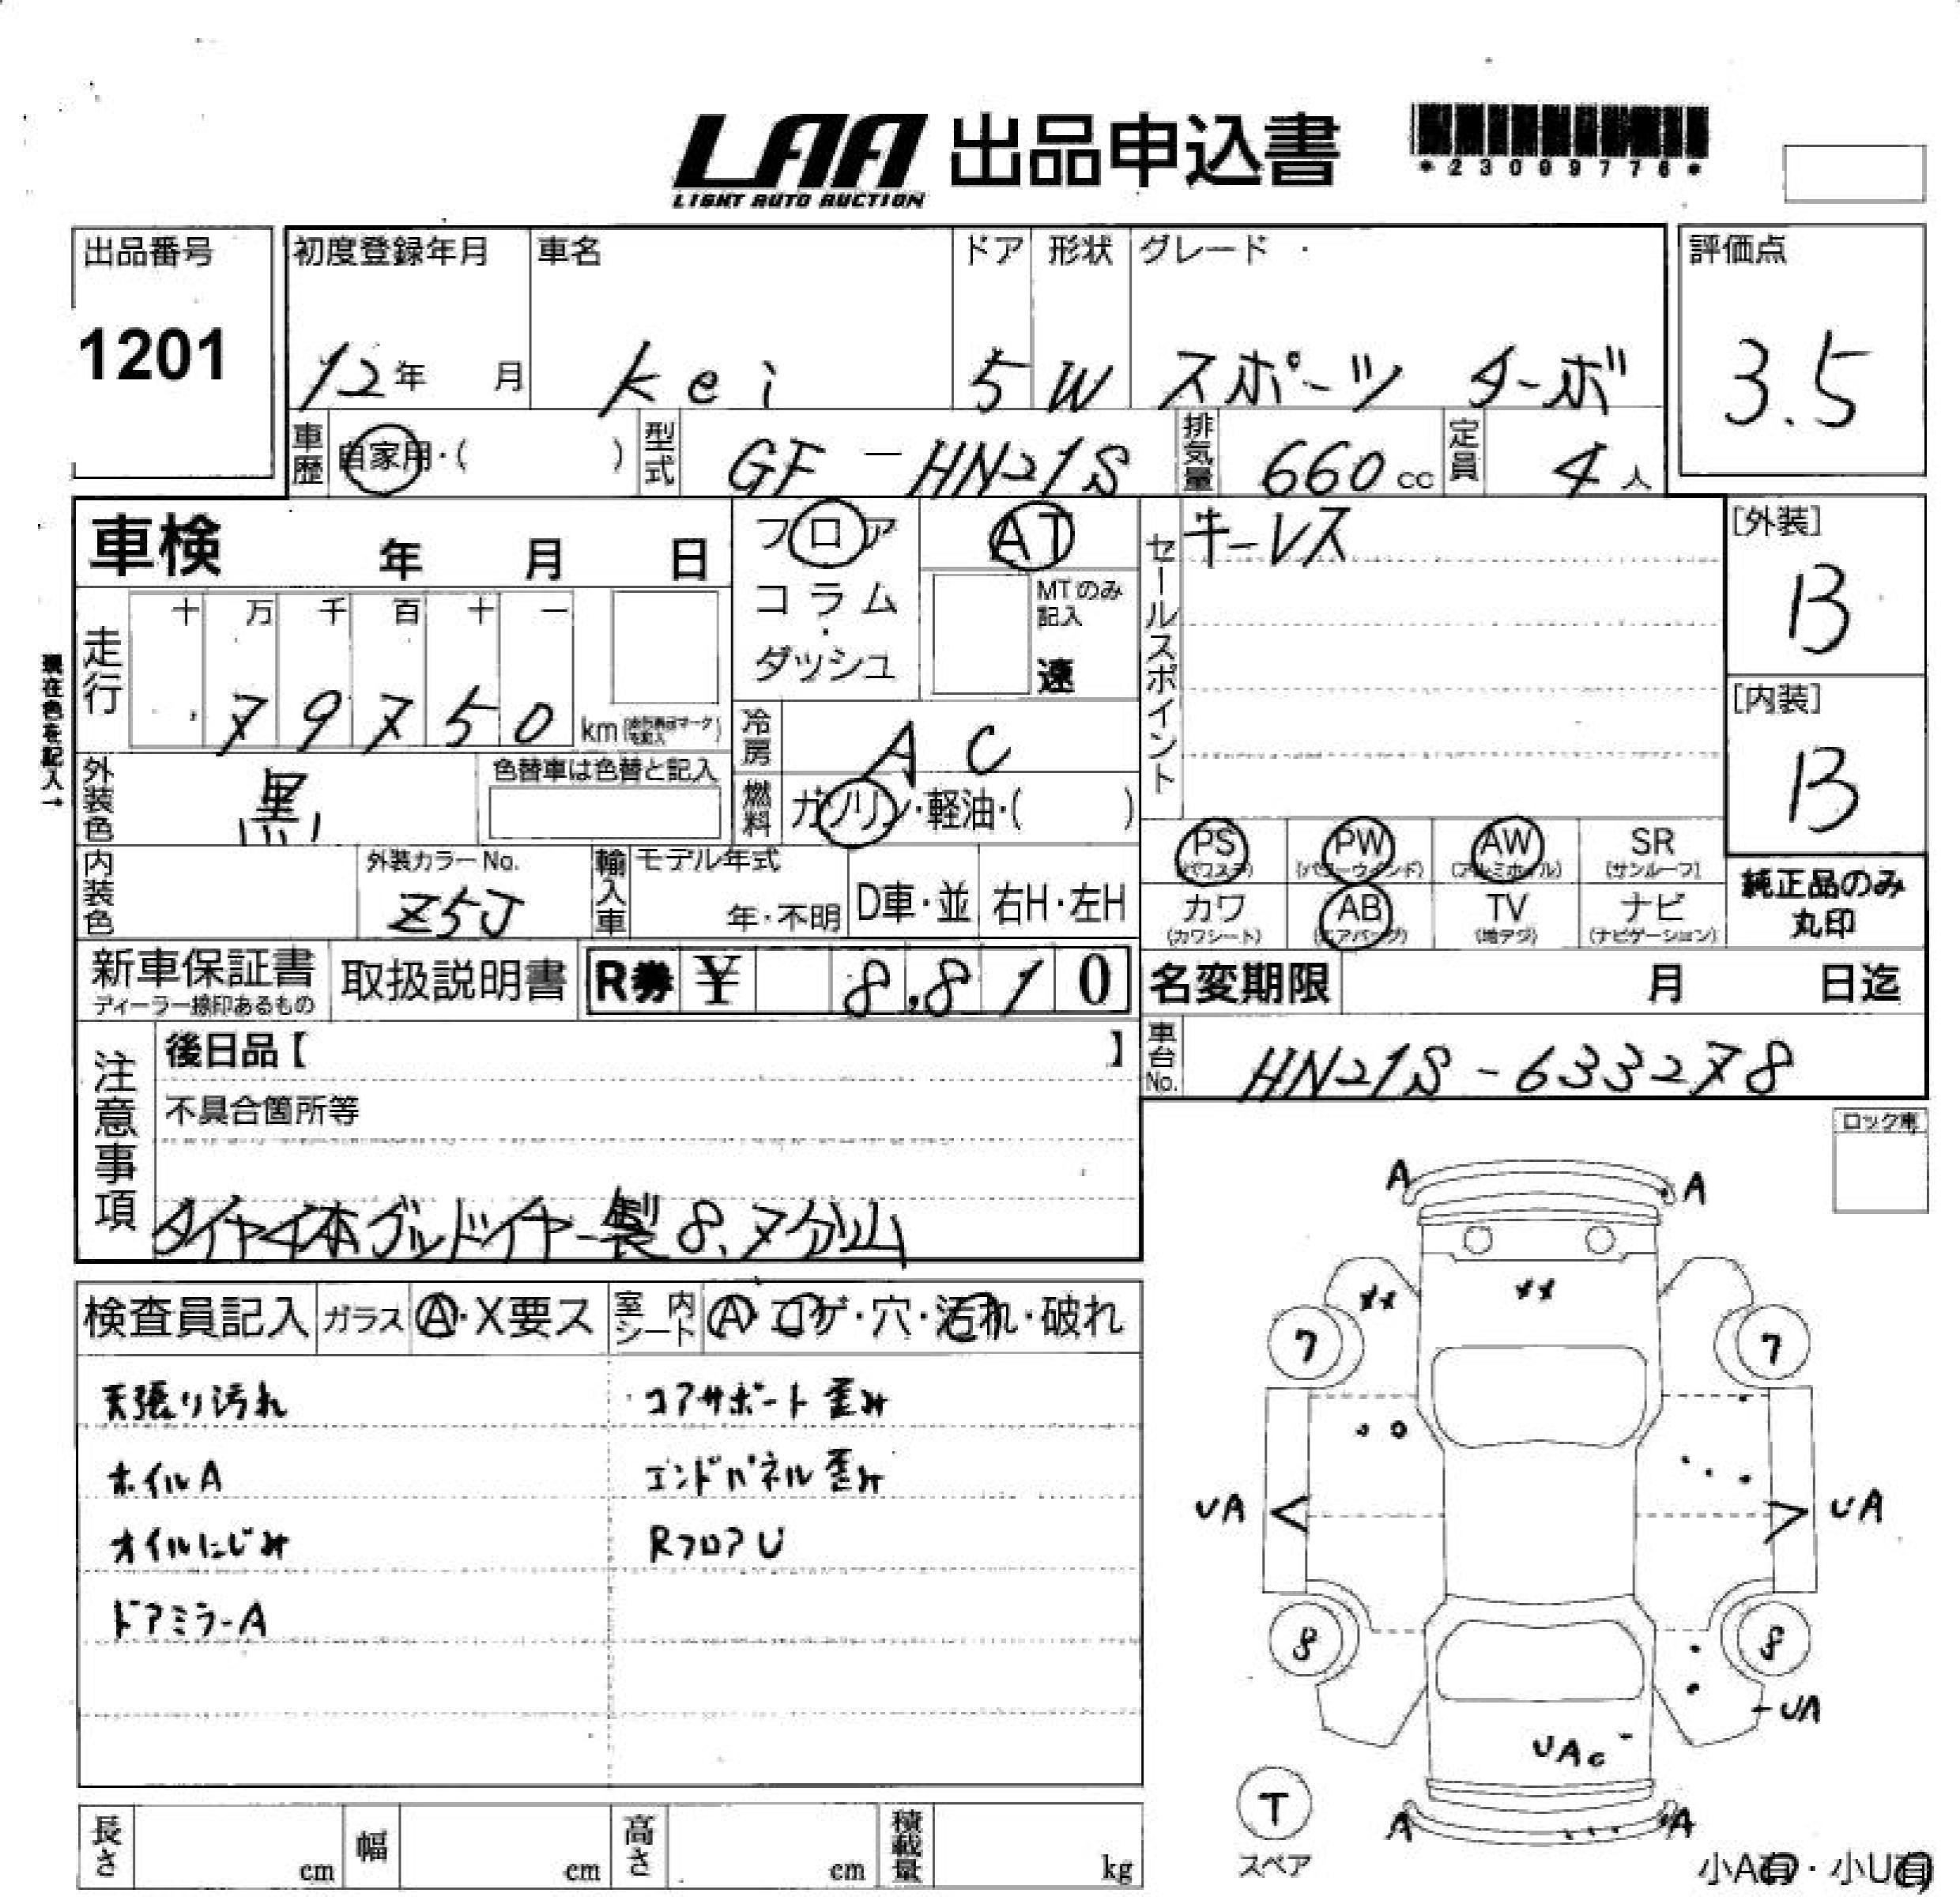 LAA 出品申込書
LIGHT AUTO AUCTION
*23099776*
出品番号
1201
初度登録年月 車名 ドア 形状 グレード
12年 月 Kei 5 W スポーツ ターボ
評価点
3.5
車歴 自家用・( ) 型式 GF-HN21S 排気量 660cc 定員 4人
車検 年 月 日
フロア
コラム
・
ダッシュ
AT
MTのみ記入
速
セールスポイント
キーレス
[外装]
B
[内装]
B
現在色を記入→
走行
十 万 千 百 十 一
79750 km
冷房 AC
外装色 黒 色替車は色替と記入
燃料 ガソリン・軽油・( )
内装色 外装カラーNo. Z5J
輸入車 モデル年式 年・不明 D車・並 右H・左H
PS (パワステ) PW (パワーウインド) AW (アルミホイル) SR (サンルーフ)
カワ (カワシート) AB (エアバッグ) TV (地デジ) ナビ (ナビゲーション)
純正品のみ
丸印
新車保証書 取扱説明書 R券 ¥ 8,810
ディーラー捺印あるもの
名変期限 月 日迄
車台No. HN21S-633278
注意事項
後日品【 】
不具合箇所等
タイヤ4本グッドイヤー製 8.7分山
ロック車
検査員記入 ガラス A・X要ス 室内シート A・コゲ・穴・汚れ・破れ
天張り汚れ コアサポート歪み
ホイルA エンドパネル歪み
オイルにじみ RフロアU
ドアミラーA
A A
7 7
UA UA
8 8
UA
UA
T
スペア
A A
長さ cm 幅 cm 高さ cm 積載量 kg
小A有・小U有